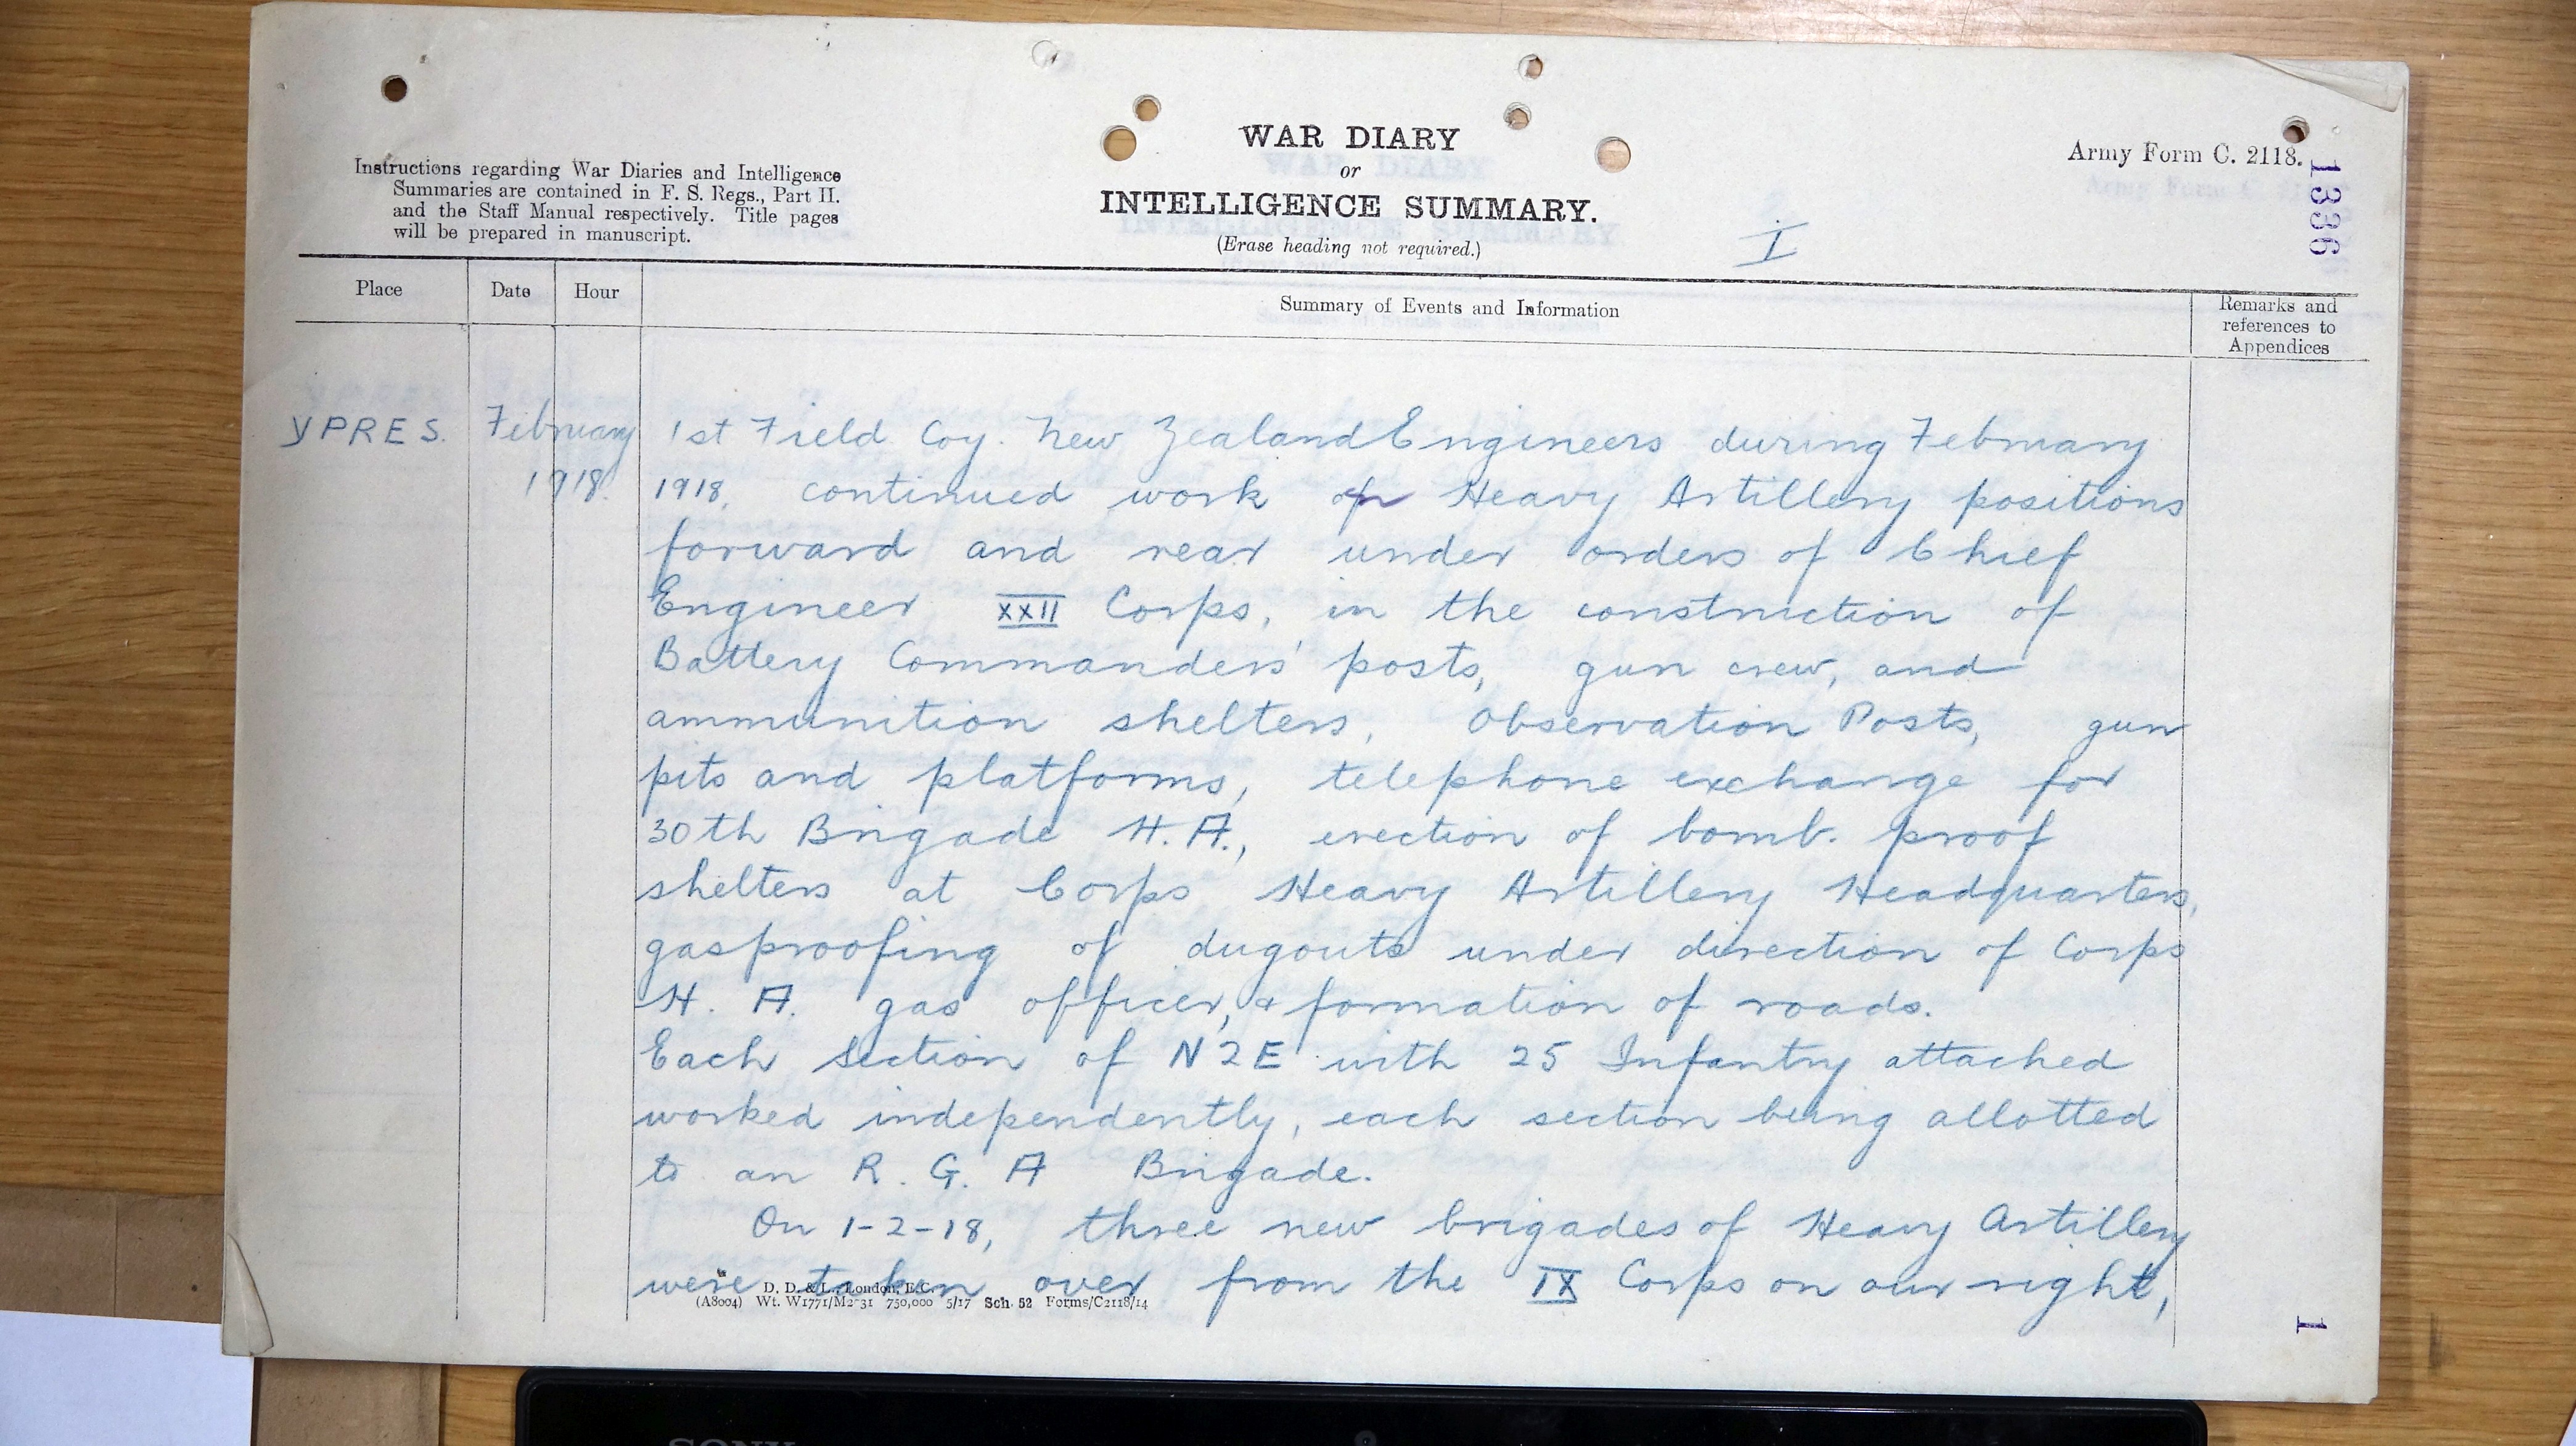 WAR DIARY
or
INTELLIGENCE SUMMARY.
(Erase heading not required.)
Instructions regarding War Diaries and Intelligence
Summaries are contained in F. S. Regs., Part II.
and the Staff Manual respectively. Title pages
will be prepared in manuscript.
Army Form C. 2118.
1336
I
Place
Date
Hour
Summary of Events and Information
Remarks and
references to
Appendices
YPRES.
February
1918.
1st Field Coy. New Zealand Engineers during February
1918, continued work on Heavy Artillery positions
forward and rear under orders of Chief
Engineer XXII Corps, in the construction of
Battery Commanders' posts, gun crew, and
ammunition shelters, Observation Posts, gun
pits and platforms, telephone exchange for
30th Brigade H.A., erection of bomb. proof
shelters at Corps Heavy Artillery Headquarters,
gasproofing of dugouts under direction of Corps
H. A. gas officer, & formation of roads.
Each Section of NZE with 25 Infantry attached
worked independently, each section being allotted
to an R. G. A Brigade.
On 1-2-18, three new brigades of Heavy Artillery
were taken over from the IX Corps on our right,
D. D. & L., London, E.C.
(A8004) Wt. W1771/M2-31 750,000 5/17 Sch. 52 Forms/C2118/14
1
SONY